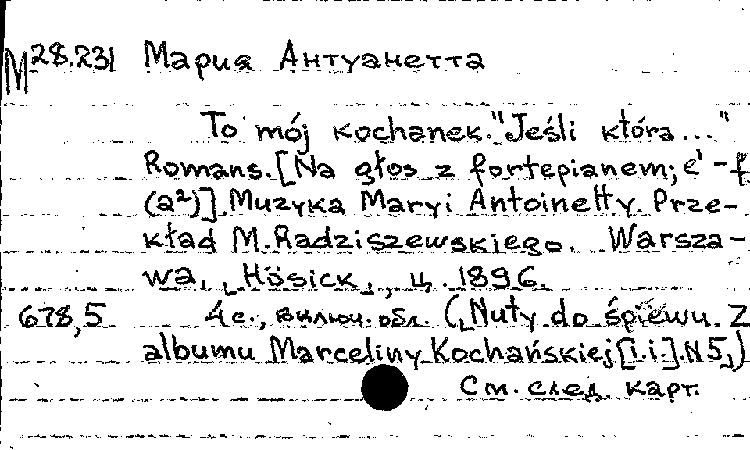 М 28.231 Мария Антуанетта
To mój kochanek. "Jeśli która..."
Romans. [Na głos z fortepianem; e¹-f²
(a²)]. Muzyka Maryi Antoinetty. Prze-
kład M. Radziszewskiego. Warsza-
wa, Hösick, ц. 1896.
678,5 4 с., включ. обл. (Nuty do śpiewu. Z
albumu Marceliny Kochańskiej [i i.]. N 5)
См. след. карт.